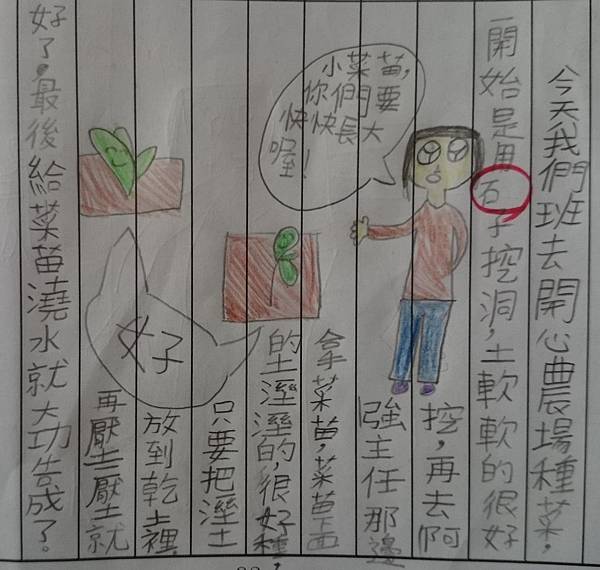 今天我們班去開心農場種菜，
一開始是用石子挖洞，土軟軟的很好
挖，再去阿
強主任那邊
拿菜苗，菜苗上面
的土溼溼的，很好種，
只要把溼土
放到乾土裡，
再壓一壓土就
好了，最後給菜苗澆水就大功告成了。
小菜苗，
你們要
快快長大
喔！
好